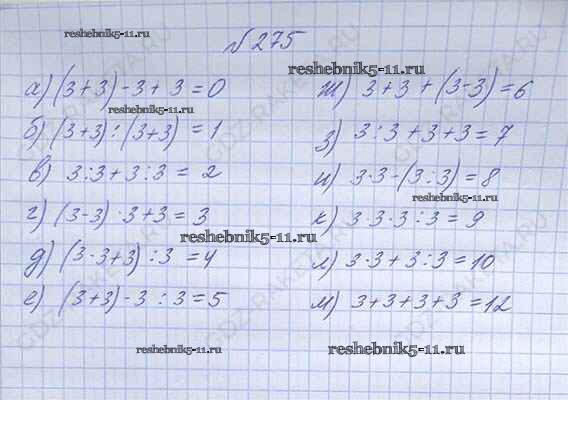 reshebnik5-11.ru
№275
reshebnik5-11.ru
а) (3+3)-3+3=0
ж) 3+3+(3-3)=6
reshebnik5-11.ru
б) (3+3):(3+3)=1
з) 3:3+3+3=7
в) 3:3+3:3=2
и) 3·3-(3:3)=8
reshebnik5-11.ru
г) (3-3)·3+3=3
к) 3·3·3:3=9
reshebnik5-11.ru
д) (3·3+3):3=4
л) 3·3+3:3=10
е) (3+3)-3:3=5
м) 3+3+3+3=12
reshebnik5-11.ru
reshebnik5-11.ru
GDZ-RAKETA.RU